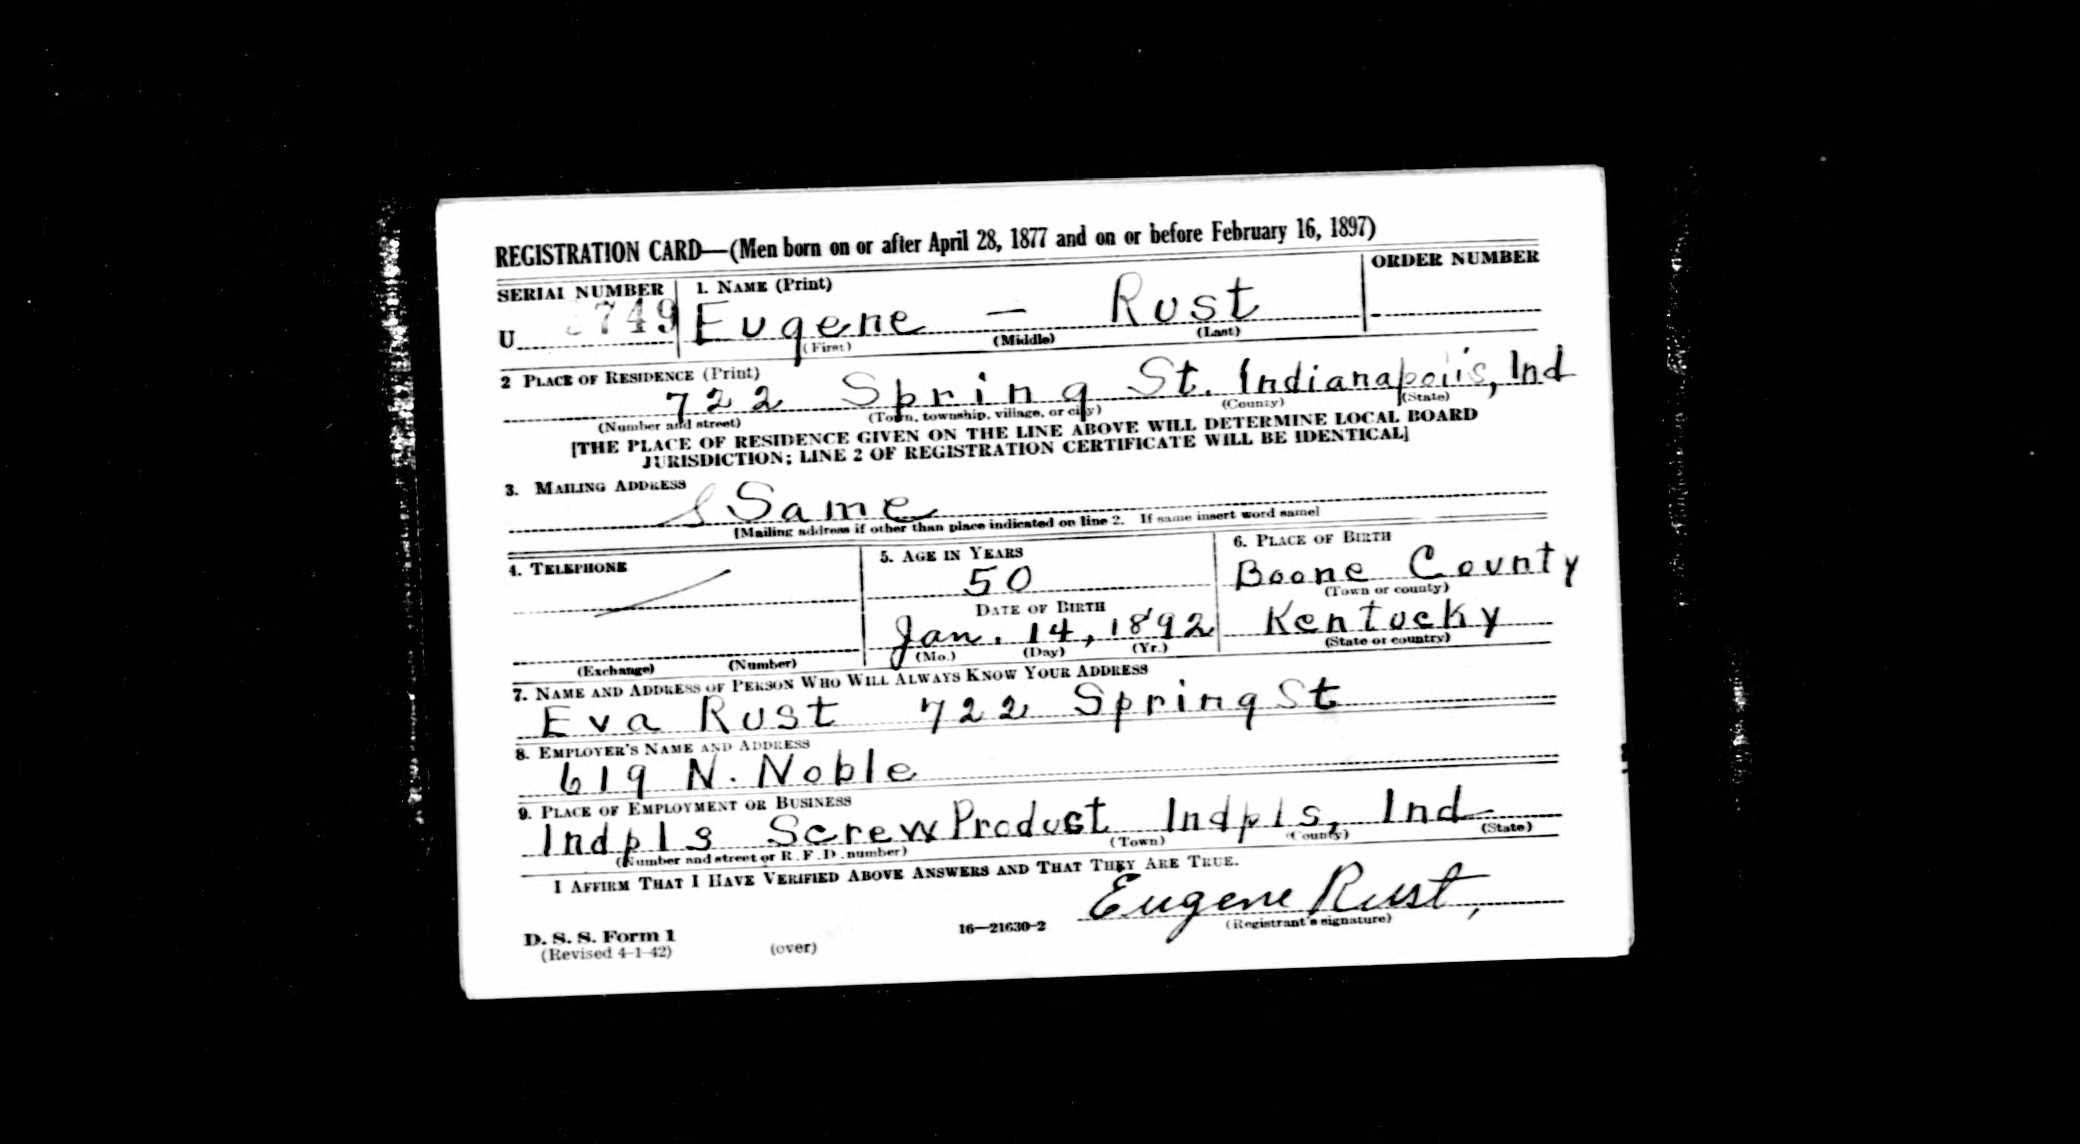 REGISTRATION CARD—(Men born on or after April 28, 1877 and on or before February 16, 1897)
SERIAL NUMBER 1. NAME (Print) ORDER NUMBER
U 749 Eugene — Rust
(First) (Middle) (Last)
2 PLACE OF RESIDENCE (Print)
722 Spring St. Indianapolis, Ind
(Number and street) (Town, township, village, or city) (County) (State)
[THE PLACE OF RESIDENCE GIVEN ON THE LINE ABOVE WILL DETERMINE LOCAL BOARD
JURISDICTION; LINE 2 OF REGISTRATION CERTIFICATE WILL BE IDENTICAL]
3. MAILING ADDRESS
Same
[Mailing address if other than place indicated on line 2. If same insert word same]
4. TELEPHONE 5. AGE IN YEARS 6. PLACE OF BIRTH
50 Boone County
(Town or county)
DATE OF BIRTH
Jan. 14, 1892 Kentucky
(Exchange) (Number) (Mo.) (Day) (Yr.) (State or country)
7. NAME AND ADDRESS OF PERSON WHO WILL ALWAYS KNOW YOUR ADDRESS
Eva Rust 722 Spring St
8. EMPLOYER'S NAME AND ADDRESS
619 N. Noble
9. PLACE OF EMPLOYMENT OR BUSINESS
Indpls Screw Product Indpls, Ind
(Number and street or R. F. D. number) (Town) (County) (State)
I AFFIRM THAT I HAVE VERIFIED ABOVE ANSWERS AND THAT THEY ARE TRUE.
Eugene Rust,
D. S. S. Form 1 16—21630-2 (Registrant's signature)
(Revised 4-1-42) (over)